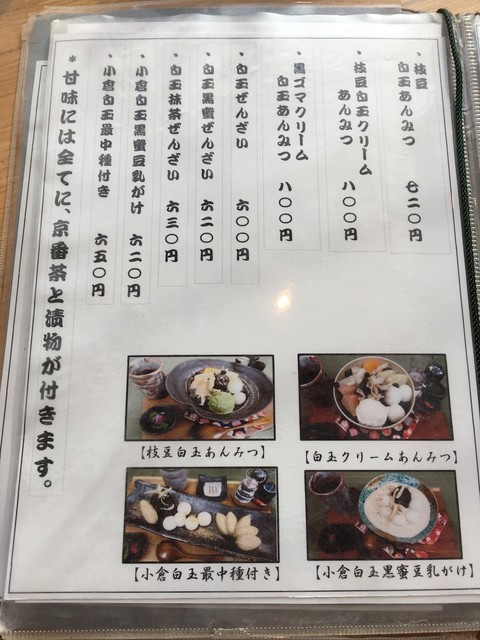 ・枝豆
白玉あんみつ 七二〇円
・枝豆白玉クリーム
あんみつ 八〇〇円
・黒ゴマクリーム
白玉あんみつ 八〇〇円
・白玉ぜんざい 六〇〇円
・白玉黒蜜ぜんざい 六二〇円
・白玉抹茶ぜんざい 六三〇円
・小倉白玉黒蜜豆乳がけ 六二〇円
・小倉白玉最中種付き 六五〇円
＊甘味には全てに、京番茶と漬物が付きます。
【枝豆白玉あんみつ】
【白玉クリームあんみつ】
【小倉白玉最中種付き】
【小倉白玉黒蜜豆乳がけ】